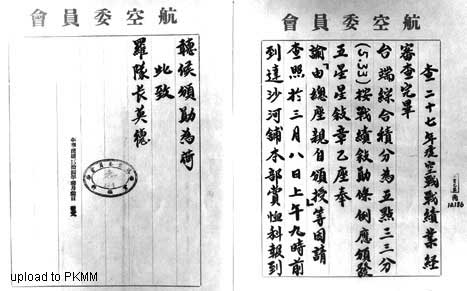 航空委員會
查二十七年度空戰戰績業經
審查完畢
台端綜合積分為五點三三分
(5.33)按戰績敘勛條例應頒發
五星星敘章乙座奉
諭「由總座親自頒授」等因請
查照於三月八日上午九時前
到達沙河舖本部賞恤科報到
航空委員會
聽候頒勛為荷
此致
羅隊長英德
中華民國
upload to PKMM